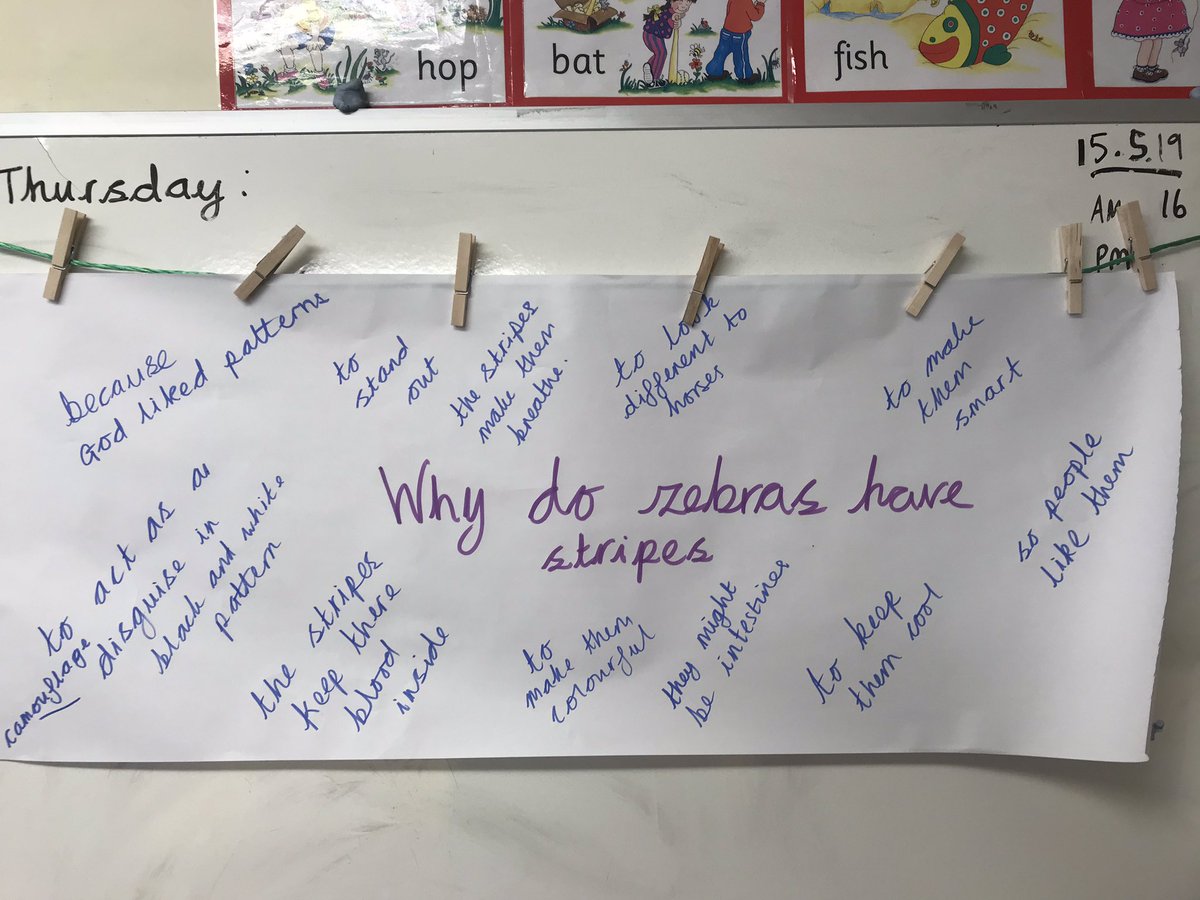 hop
bat
fish
Thursday:
15.5.19
AM 16
PM
because
God liked patterns
to
stand
out
the stripes
make them
breathe.
to look
different to
horses
to make
them
smart
Why do zebras have
stripes
so people
like them
to act as a
disguise in
black and white
pattern
camouflage
the stripes
keep there
blood
inside
to
make them
colourful
they might
be intestines
to keep
them cool